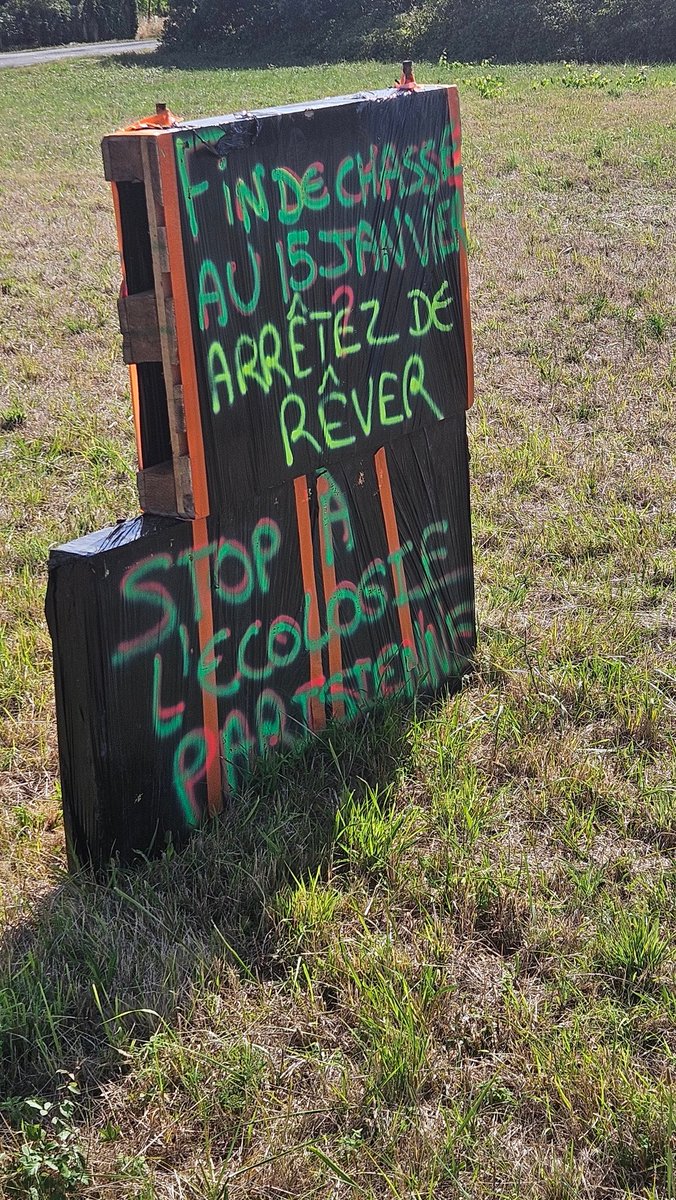 FIN DE CHASSE
AU 15 JANVIER
?
ARRÊTEZ DE
RÊVER
STOP A
L'ECOLOGIE
PARISIENNE